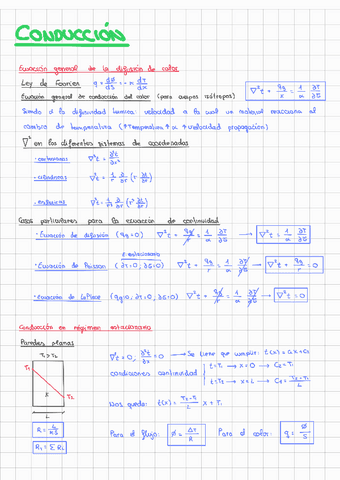 CONDUCCIÓN
Ecuación general de la difusión de calor
Ley de Fourier q = dΦ/dS = -κ dT/dx
Ecuación general de conducción del calor (para cuerpos isótropos) ∇²t + qg/κ = 1/α ∂t/∂τ
Siendo α la difusividad térmica: velocidad a la cual un material reacciona al
cambio de temperatura (↑temperatura ↑α ↑velocidad propagación)
∇² en los diferentes sistemas de coordenadas
∇²t =
· cilíndricas ∇²t =
· esféricas ∇²t =
Casos particulares para la ecuación de continuidad
· Ecuación de difusión (qg=0) ∇²t + qg/r = 1/α ∂t/∂τ → ∇²t = 1/α ∂t/∂τ
estacionario
· Ecuación de Poisson ∇²t + qg/r = 1/α ∂t/∂τ → ∇²t + qg/r = 0
· Ecuación de LaPlace ∇²t + qg/r = 1/α ∂t/∂τ → ∇²t = 0
Conducción en régimen estacionario
Paredes planas
T₁>T₂
T₁
T₂
x
L
∇²t = 0, → Se tiene que cumplir: t(x) = C₁x + C₂
condiciones continuidad
t=T₁ → x=0 → C₂=T₁
t=T₂ → x=L → C₁ = (T₂-T₁)/L
Nos queda: t(x) = (T₂-T₁)/L x + T₁
R = L/κS
Rₜ = ΣRᵢ
Para el flujo: Φ = ΔT/R Para el calor: q = Φ/S